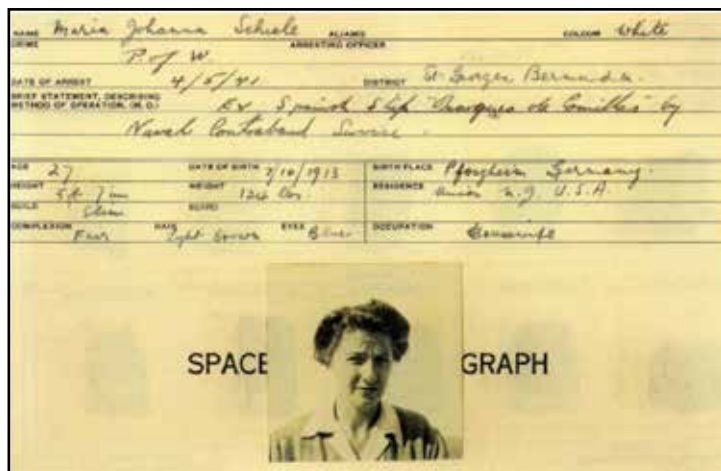 NAME Maria Johanna Schiele ALIASES COLOUR White
CRIME P of W. ARRESTING OFFICER
DATE OF ARREST 4/5/41 DISTRICT St Georges Bermuda.
BRIEF STATEMENT, DESCRIBING METHOD OF OPERATION, (M.O.) Ex Spanish Ship "Marques de Comillas" by
Naval Contraband Service.
AGE 27 DATE OF BIRTH 7/10/1913 BIRTH PLACE Pforzheim Germany.
HEIGHT 5ft 7in WEIGHT RESIDENCE Union N.J. U.S.A
BUILD Slim BEARD
COMPLEXION Fair HAIR Light brown EYES Blue OCCUPATION Housewife
SPACE GRAPH